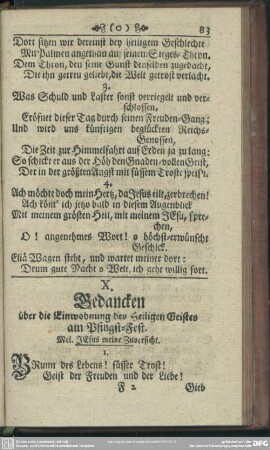 (0) 83
Dort sitzen wir dereinst bey heiligem Geschlechte
Mit Palmen angethan auf seinem Sieges-Thron,
Dem Thron, den seine Gunst denselben zugedacht,
Die ihn getreu geliebt, die Welt getrost verlacht.
3.
Was Schuld und Laster sonst verriegelt und ver-
schlossen,
Eröfnet dieser Tag durch seinen Freuden-Gang;
Und wird uns künftigen beglückten Reichs-
Genossen,
Die Zeit zur Himmelfahrt auf Erden ja zu lang;
So schickt er aus der Höh den Gnaden-vollen Geist,
Der in der größten Angst mit süssem Troste speist.
4.
Ach möchte doch mein Hertz, da JEsus eilt, zerbrechen!
Ach könt' ich jetzo bald in diesem Augenblick
Mit meinem grösten Heil, mit meinem JEsu, spre-
chen,
O! angenehmes Wort! o höchst-erwünscht
Geschick.
Eliä Wagen steht, und wartet meiner dort:
Drum gute Nacht o Welt, ich gehe willig fort.
X.
Gedancken
über die Einwohnung des Heiligen Geistes
am Pfingst-Fest.
Mel. JEsus meine Zuversicht.
1.
BRunn des Lebens! süsser Trost!
Geist der Freuden und der Liebe!
F 2 Gieb